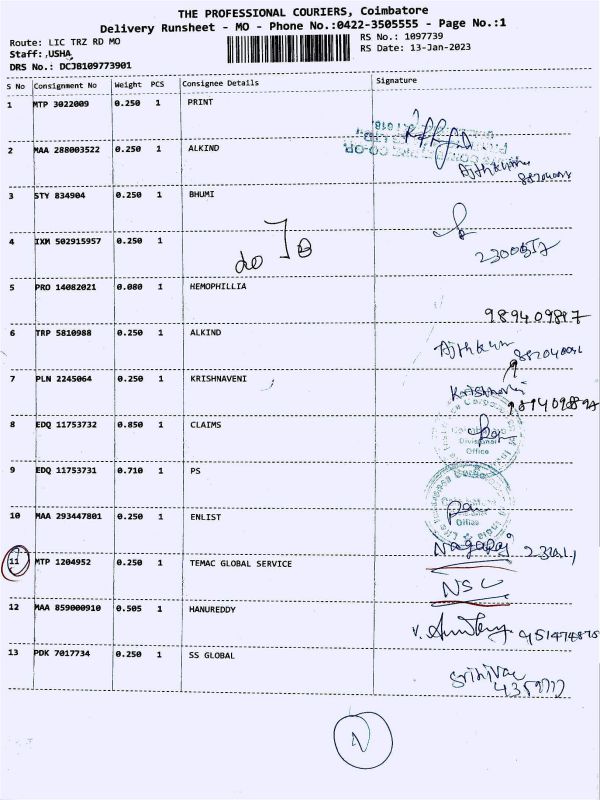 THE PROFESSIONAL COURIERS, Coimbatore
Delivery Runsheet - MO - Phone No.:0422-3505555 - Page No.:1
Route: LIC TRZ RD MO
RS No.: 1097739
Staff:,USHA
RS Date: 13-Jan-2023
DRS No.: DCJB109773901
S No Consignment No Weight PCS Consignee Details Signature
1 MTP 3022009 0.250 1 PRINT
2 MAA 288003522 0.250 1 ALKIND
3 STY 834904 0.250 1 BHUMI
4 IXM 502915957 0.250 1
5 PRO 14082021 0.080 1 HEMOPHILLIA
6 TRP 5810988 0.250 1 ALKIND
7 PLN 2245064 0.250 1 KRISHNAVENI
Krishnaveni
8 EDQ 11753732 0.850 1 CLAIMS
Divisional
Office
9 EDQ 11753731 0.710 1 PS
Office
10 MAA 293447801 0.250 1 ENLIST
Nagaraj
11 MTP 1204952 0.250 1 TEMAC GLOBAL SERVICE
NSC
12 MAA 859000910 0.505 1 HANUREDDY
13 PDK 7017734 0.250 1 SS GLOBAL